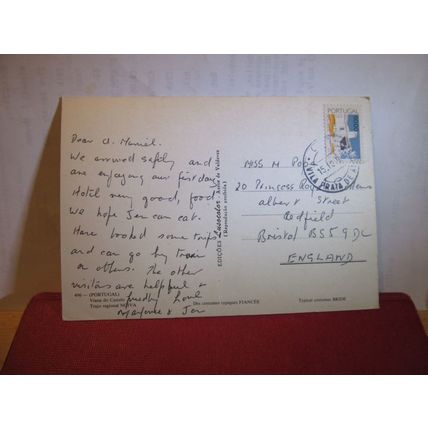 Dear A. Muriel.
We arrived safely and
are enjoying our first day
Hotel very good, food
We hope Jan can eat.
Have booked some trips
and can go by train
to others. The other
visitors are helpful &
friendly love
Marjorie & Jan
490 — (PORTUGAL)
Viana do Castelo
Traje regional NOIVA
Des costumes typiques FIANCÉE
Typical costumes BRIDE
EDIÇÕES Lusocolor
(Reprodução proibida)
PORTUGAL
VILA PRAIA DE
MISS M
20 Princess Royal
Albert Street
Redfield
Bristol BS5 9DL
ENGLAND